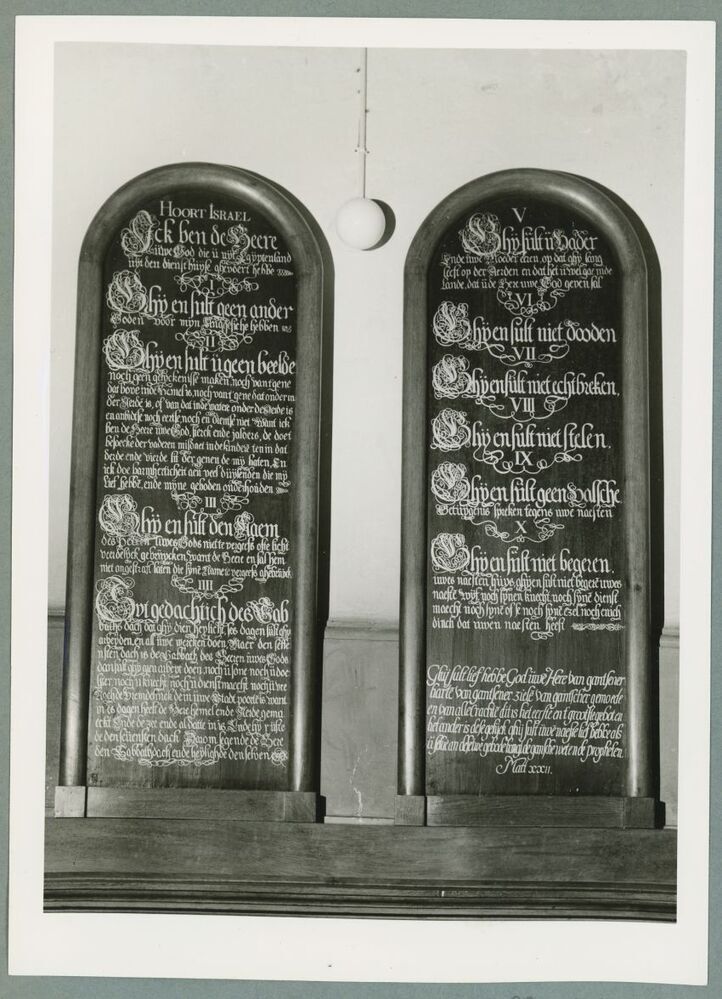 HOORT ISRAEL
Ick ben de Heere
uwe God die u uyt Egyptenland
uyt den diensthuyse ghevoert hebbe
I
Ghy en sult geen ander
Goden voor myn Aengesichte hebben
II
Ghy en sult u geen beelde
noch geen gelyckenisse maken, noch van t gene
dat bove inde Hemel is, noch van t gene dat onder in
der Aerde is, of van dat inde water onder de Aerde is
en anbidse noch eertse, noch en dientse niet Want ick
ben de Heere uwe God, sterck ende jalours, de doet
besoecke der vaderen misdaet in de kinderē ten in dat
derde ende vierde lit der genen de my haten, En
ick doe barmherticheit aen veel duysenden die my
Lief hebbē, ende myne geboden onderhouden
III
Ghy en sult den Naem
des Heeren Uwes Gods niet te vergeefs ofte licht
veerdelyck gebruycken, want de Heere en sal hem
niet ongestraft laten die synē Name te vergeefs gebruyct
IIII
Gyt gedachtich des Sab
baths dach dat ghy dien heylicht, ses dagen sult ghy
arbeyden, en all uwe wercken doen, Maer den seve
nsten dach is de Sabbath des Heeren uwes Gods
dan sult ghy geen arbeyt doen, noch u sone noch u doc
hter, noch u knecht, noch u dienstmaecht noch u vee
Noch de Vremdelinck de in uwe Stadt poorte is want
in ses dagen heeft de Here hemel ende Aerde gema
eckt Ende de zee ende al datter in is Ende hy ruste
de den sevensten dach Darom segende de Here
den Sabbathdach ende heylighde denselven
V
Ghy sult u Vader
Ende uwe Moeder eeren, op dat ghy lang
leeft op der Aerden en dat het u wel gae inde
lande, dat u de Here uwe God geven sal
VI
Ghy en sult niet dooden
VII
Ghy en sult niet echtbreken,
VIII
Ghy en sult niet stelen,
IX
Ghy en sult geen Valsche
Getuygenis spreken tegens uwe naesten
X
Ghy en sult niet begeren,
uwes naesten Huys, ghy en sult niet begerē uwes
naestē Wyf noch synen knecht noch synē dienst
maecht noch synē os noch synē ezel noch enich
dinck dat uwen naesten heeft
Ghij sult lief hebbē God uwe Here van gantsener
harte van gantsener Ziele van gantscher gemoede
en van alle crachtē dit is het eerste en t grootste gebot en
het ander is dese gelijck ghij sult uwe naestē lief hebbē als
u selve an dese twe geboden hangt de gansche wet en de propheten.
Matt XXII.